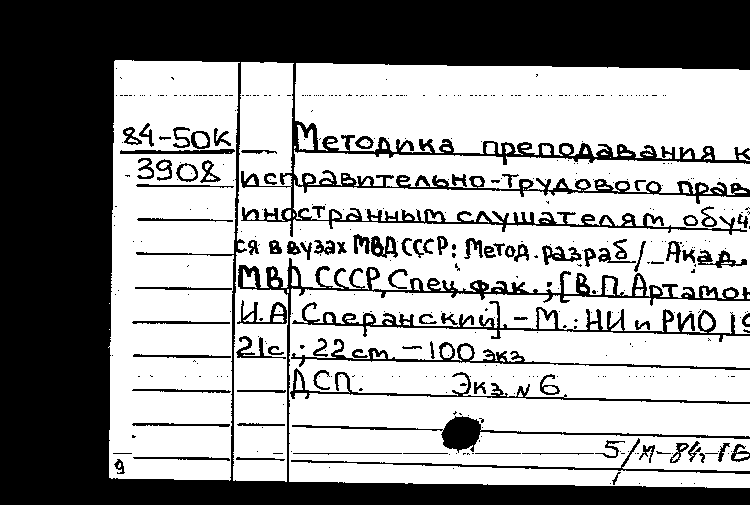 84-50К Методика преподавания к
3908 исправительно-трудового прав
иностранным слушателям, обуч
ся в вузах МВД СССР: Метод. разраб / Акад.
МВД СССР, Спец. фак.; [В.П. Артамон
И.А. Сперанский]. – М.: НИ и РИО, 19
21с.; 22 см. – 100 экз
ДСП. Экз. № 6.
5/IX-84г. ГБ
9